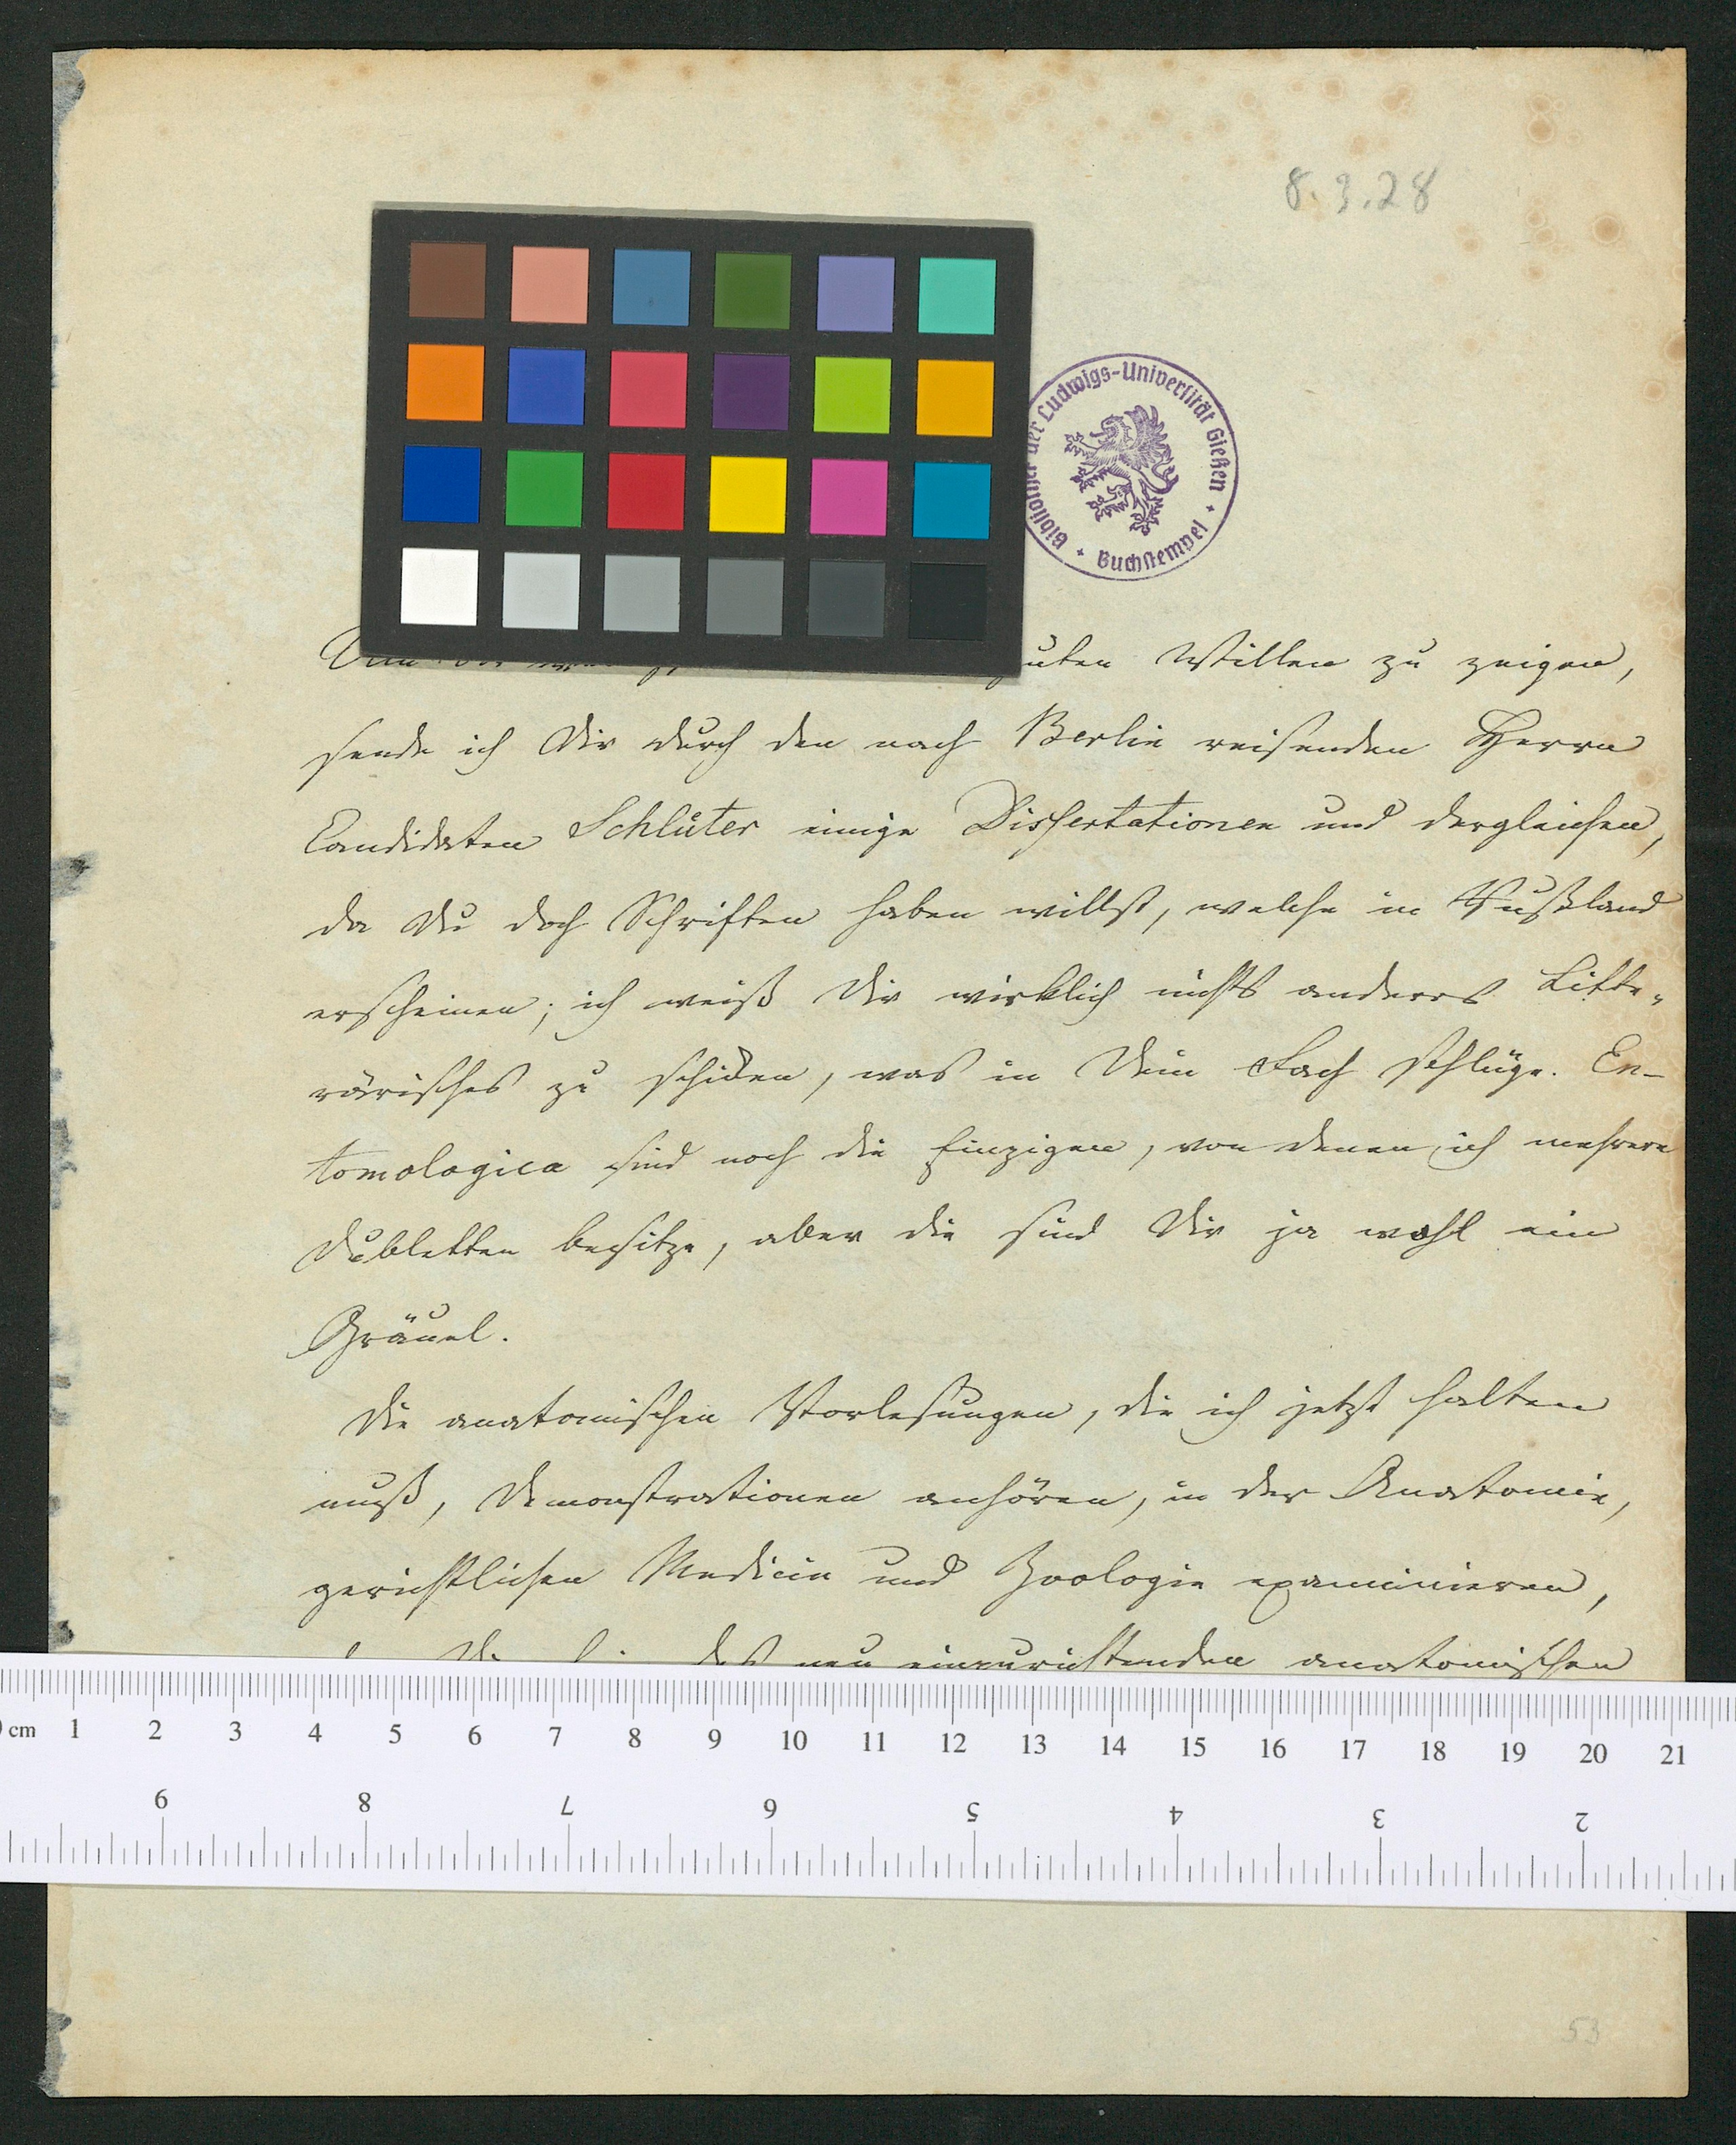 8.3.28
der Ludwigs-Universität Gießen
Buchstempel
Willen zu zeigen,
sende ich Dir durch den nach Berlin reisenden Herrn
Candidaten Schlüter einige Dissertationen und dergleichen,
da Du doch Schriften haben willst, welche in Rußland
erscheinen; ich weiß Dir wirklich nichts anderes Litte„
rärisches zu schicken, was in Dein Fach schlüge. En-
tomologica sind noch die Einzigen, von denen ich mehrere
Dubletten besitze, aber die sind Dir ja wohl ein
Gräuel.
Die anatomischen Vorlesungen, die ich jetzt halten
muß, Demonstrationen anhören, in der Anatomie,
gerichtlichen Medicin und Zoologie examinieren,
des neu einzurichtenden anatomischen
0 cm 1 2 3 4 5 6 7 8 9 10 11 12 13 14 15 16 17 18 19 20 21
9 8 7 6 5 4 3 2
53